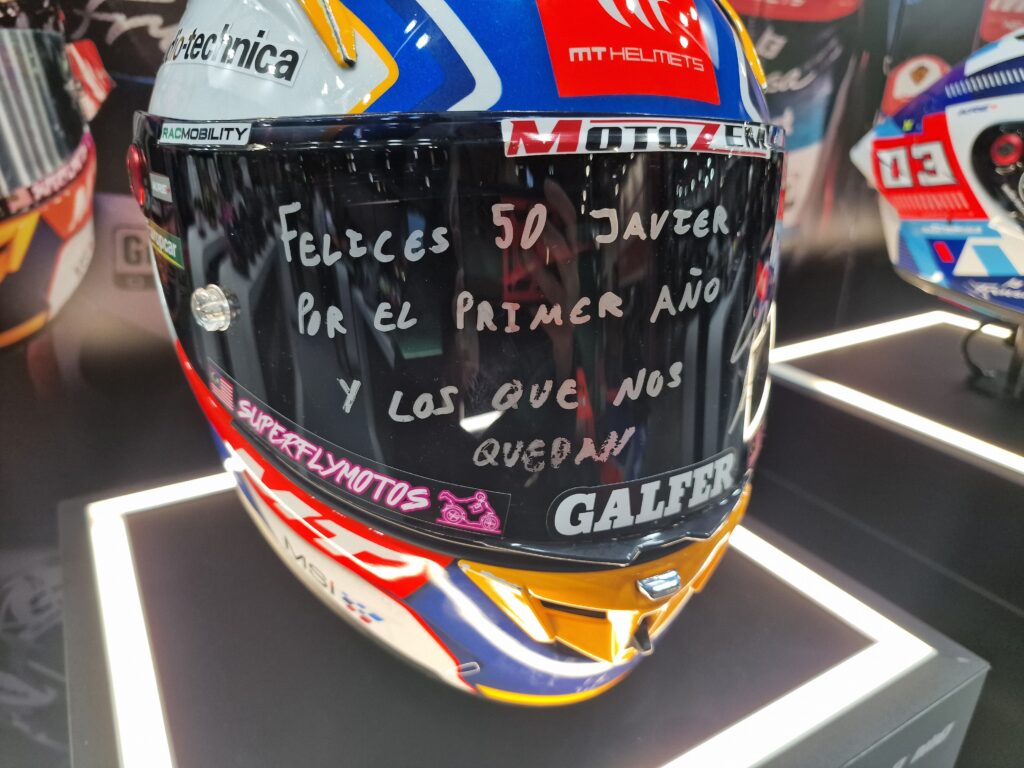 -technica
MT HELMETS
RACMOBILITY
MOTOZEM
FELICES 50 JAVIER
POR EL PRIMER AÑO
Y LOS QUE NOS
QUEDAN
SUPERFLYMOTOS
GALFER
MT
MSI
93